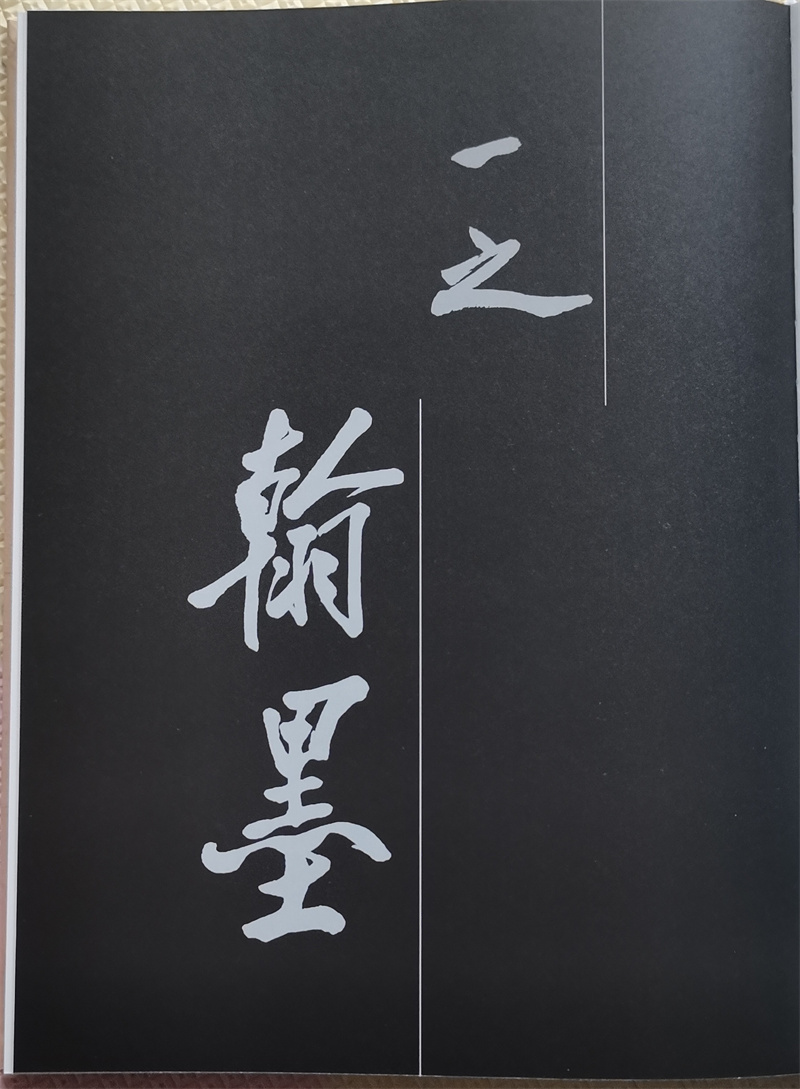 一之
翰墨